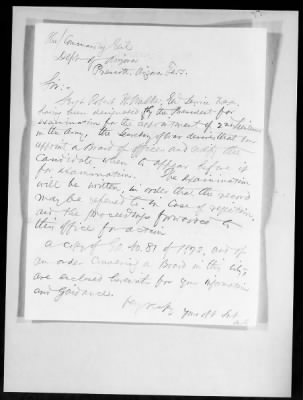 Commanding Genl
Dept of Arizona
Prescott, Arizona Terr.
Sir:
Robert
having been designated by the President for
examination for the appointment of 2nd Lieutenant
in the Army, the Secretary of War desires that you
appoint a board of officers and notify the
candidate when to appear before it
for examination. The examination
will be written, in order that the record
may be referred to in case of rejection,
and the proceedings forwarded to
this office for action.
A copy of G.O. No. 87 of 1872, and of
an order convening a Board in this city,
are enclosed herewith for your information
and guidance.
Very resp'y Your obt Svt